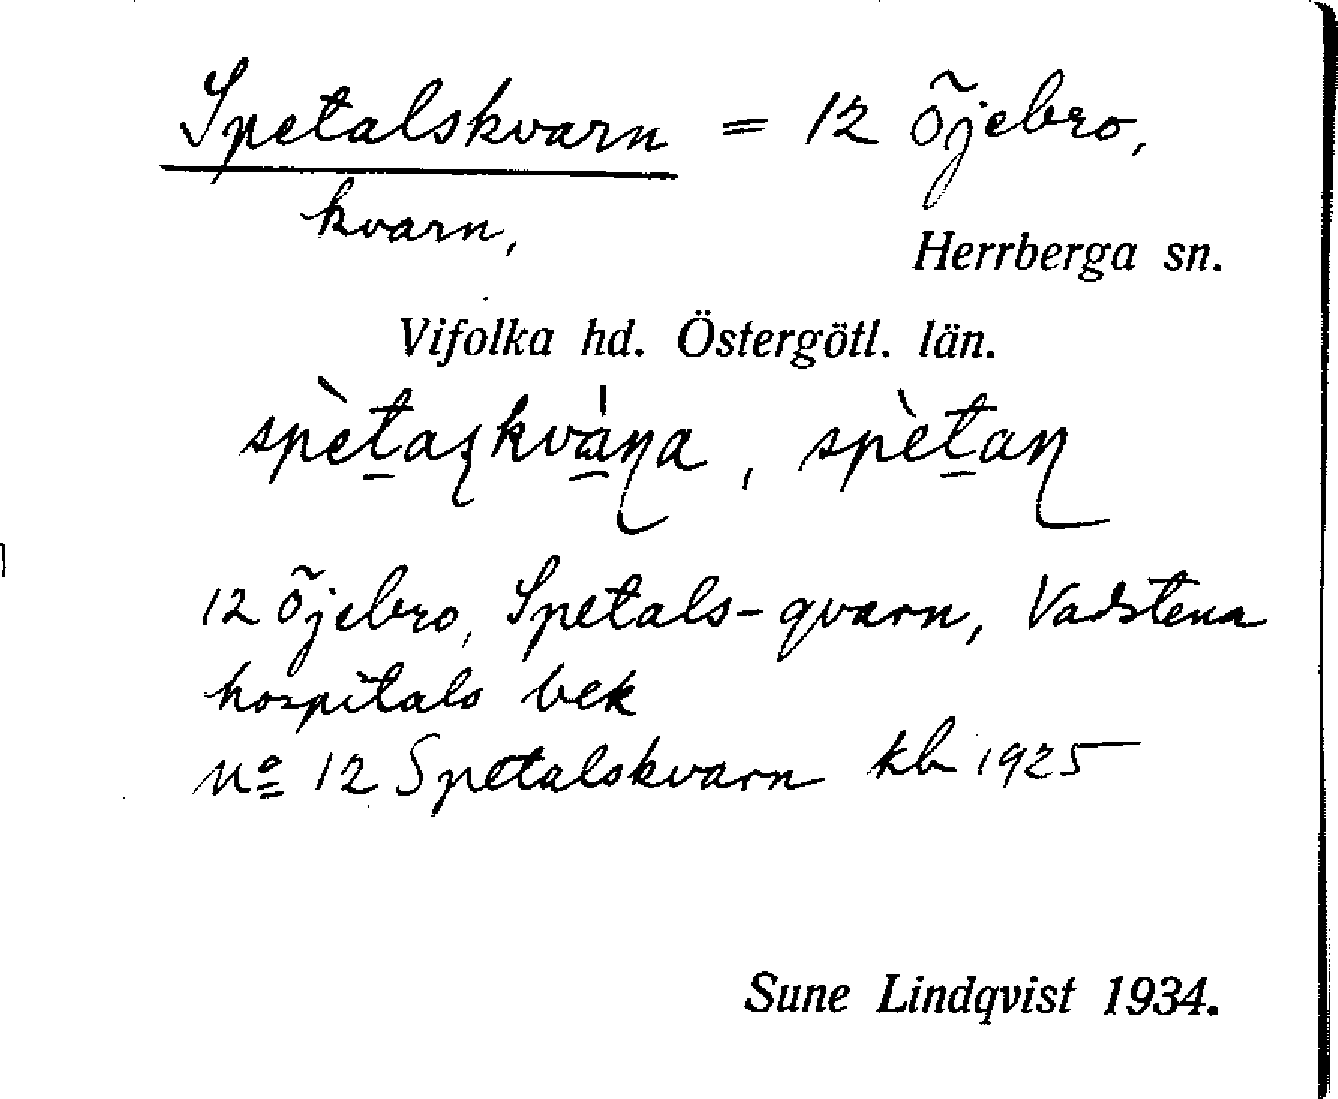 Spetalskvarn = 12 Õjebro,
kvarn,
Herrberga sn.
Vifolka hd. Östergötl. län.
12 Õjebro, Spetals-qvarn, Vadstena
hospitals bek
No 12 Spetalskvarn kb 1925
Sune Lindqvist 1934.